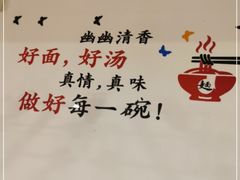 幽幽清香
好面，好汤
真情，真味
做好每一碗！